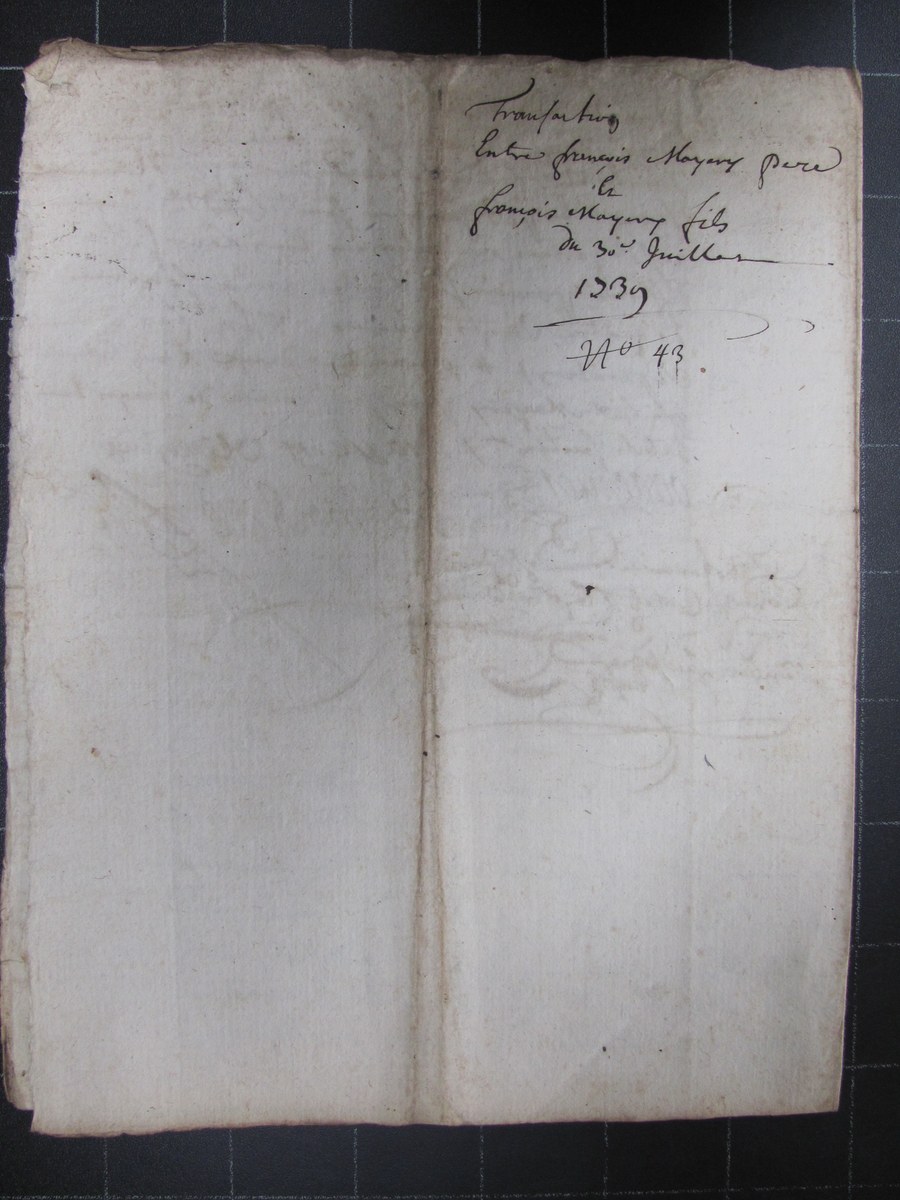 Transaction
Entre françois Mayery pere
Et
françois Mayery fils
du 30e. Juillet
1739
No 43